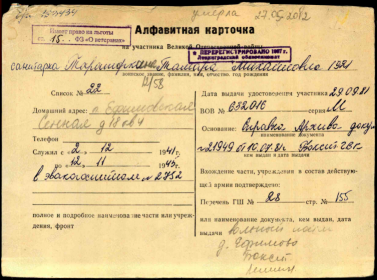 умерла 27.05.2012
Имеет право на льготы
ст. 15. ФЗ «О ветеранах»
Алфавитная карточка
на участника Великой Отечественной войны
ПЕРЕРЕГИСТРИРОВАНО 1997 г.
санитарка Тамара Михайловна 1921
воинское звание, фамилия, имя, отчество, год рождения
Список № 22
Домашний адрес:
Сенная д 18 кв 4
Телефон
Служил с 2 12 1941 г.
по 12 11 1943 г.
в эвакогоспитале № 2752
полное и подробное наименование части или учреждения, фронт
Дата выдачи удостоверения 29.09.81
ВОВ № 032016 серия М
Основание: Справка Архива
наименование документа
№ 21949 от 10.07.81 г.
кем выдан и дата выдачи
Вхождение части, учреждения в состав действующей армии подтверждено:
Перечень ГШ № 28 стр. № 155
или наименование документа, кем выдан, дата выдачи
д. Ефимово